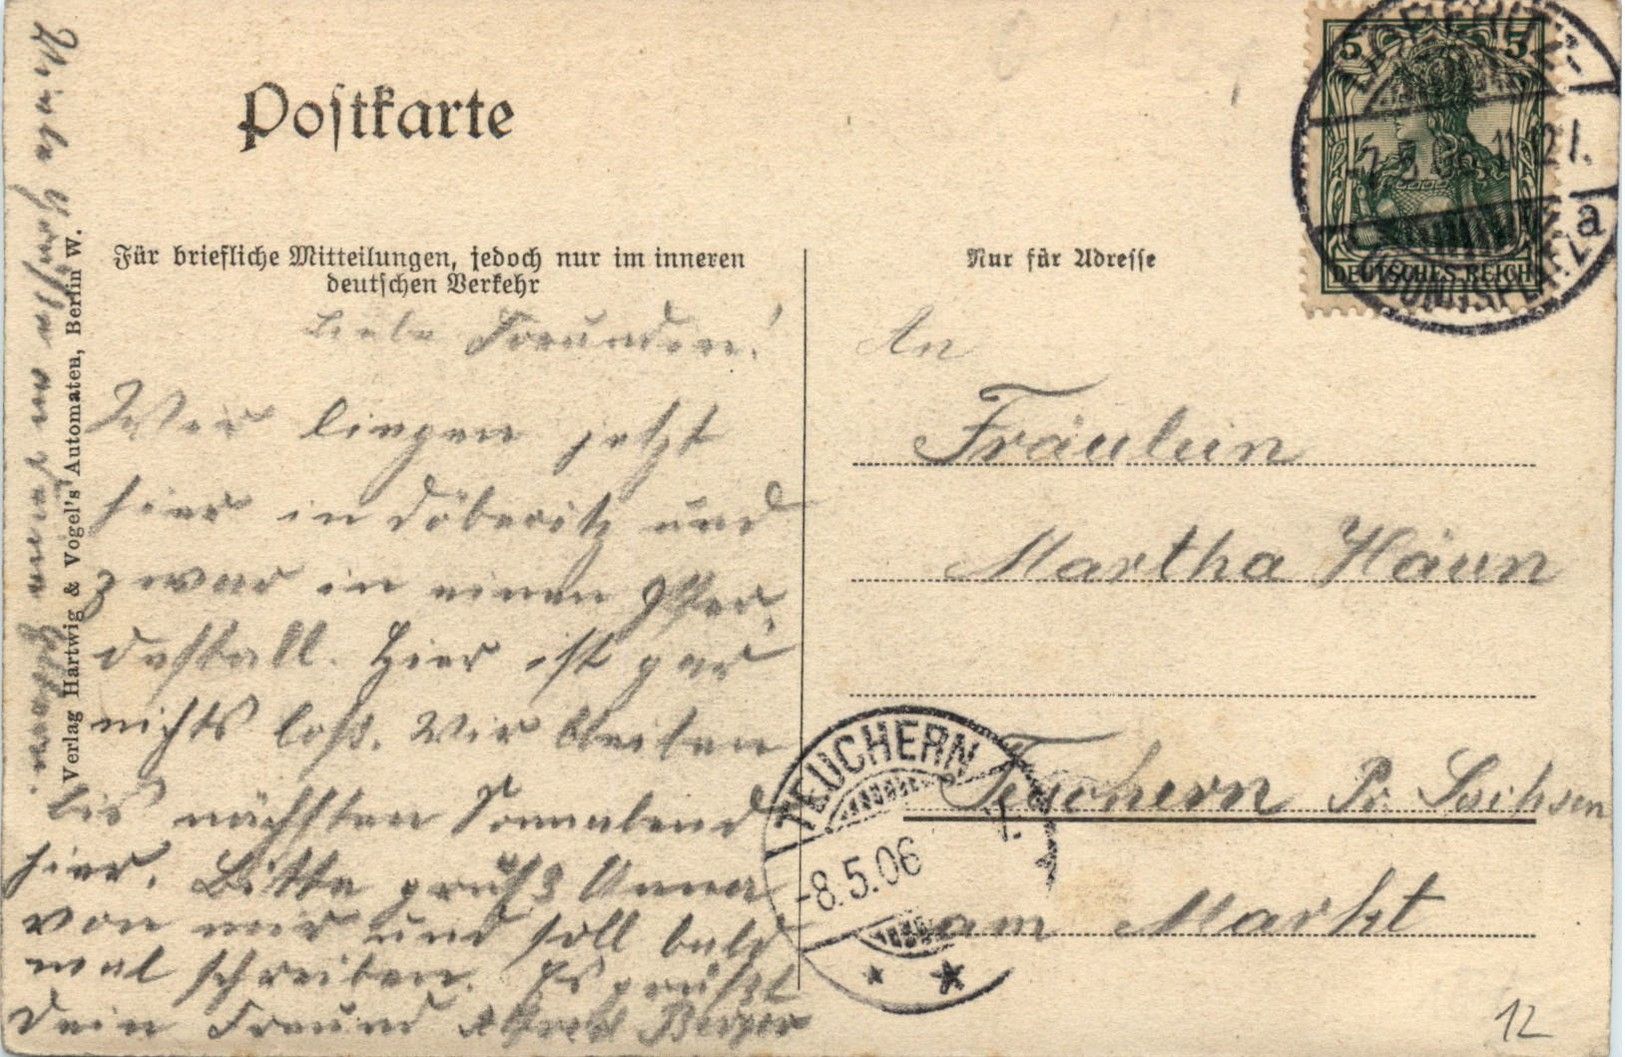 Postkarte
Für briefliche Mitteilungen, jedoch nur im inneren
deutschen Verkehr
Nur für Adresse
5 5
DEUTSCHES REICH
Liebe Freundin!
Wir liegen jetzt
hier in Döberitz und
zwar in einen Pfer
destall. Hier ist gar
nichts loß. Wir bleiben
bis nächsten Sonnabend
hier. Bitte grüße Anna
von mir und soll bald
mal schreiben. Es grüßt
Dein Freund Alfred Berger
Viele Grüße an Deine Eltern.
Verlag Hartwig & Vogel's Automaten, Berlin W.
An
Fräulein
Martha Häun
Teuchern Pr. Sachsen
am Markt
TEUCHERN
-8.5.06
12